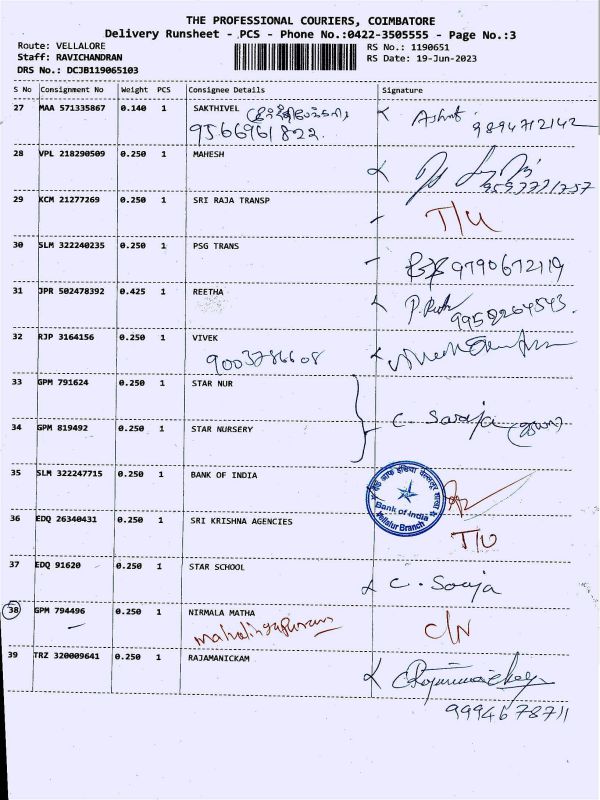 THE PROFESSIONAL COURIERS, COIMBATORE
Delivery Runsheet - PCS - Phone No.:0422-3505555 - Page No.:3
Route: VELLALORE RS No.: 1190651
Staff: RAVICHANDRAN RS Date: 19-Jun-2023
DRS No.: DCJB119065103
S No Consignment No Weight PCS Consignee Details Signature
27 MAA 571335867 0.140 1 SAKTHIVEL
9566961822. 9894712142
28 VPL 218290509 0.250 1 MAHESH
29 KCM 21277269 0.250 1 SRI RAJA TRANSP T/U
30 SLM 322240235 0.250 1 PSG TRANS 9790672119
31 JPR 502478392 0.425 1 REETHA
32 RJP 3164156 0.250 1 VIVEK
33 GPM 791624 0.250 1 STAR NUR
34 GPM 819492 0.250 1 STAR NURSERY C. Saroja
35 SLM 322247715 0.250 1 BANK OF INDIA
Bank of India
Vellalur Branch
36 EDQ 26340431 0.250 1 SRI KRISHNA AGENCIES T/U
37 EDQ 91620 0.250 1 STAR SCHOOL C. Saroja
38 GPM 794496 0.250 1 NIRMALA MATHA C/N
39 TRZ 320009641 0.250 1 RAJAMANICKAM
9994678711